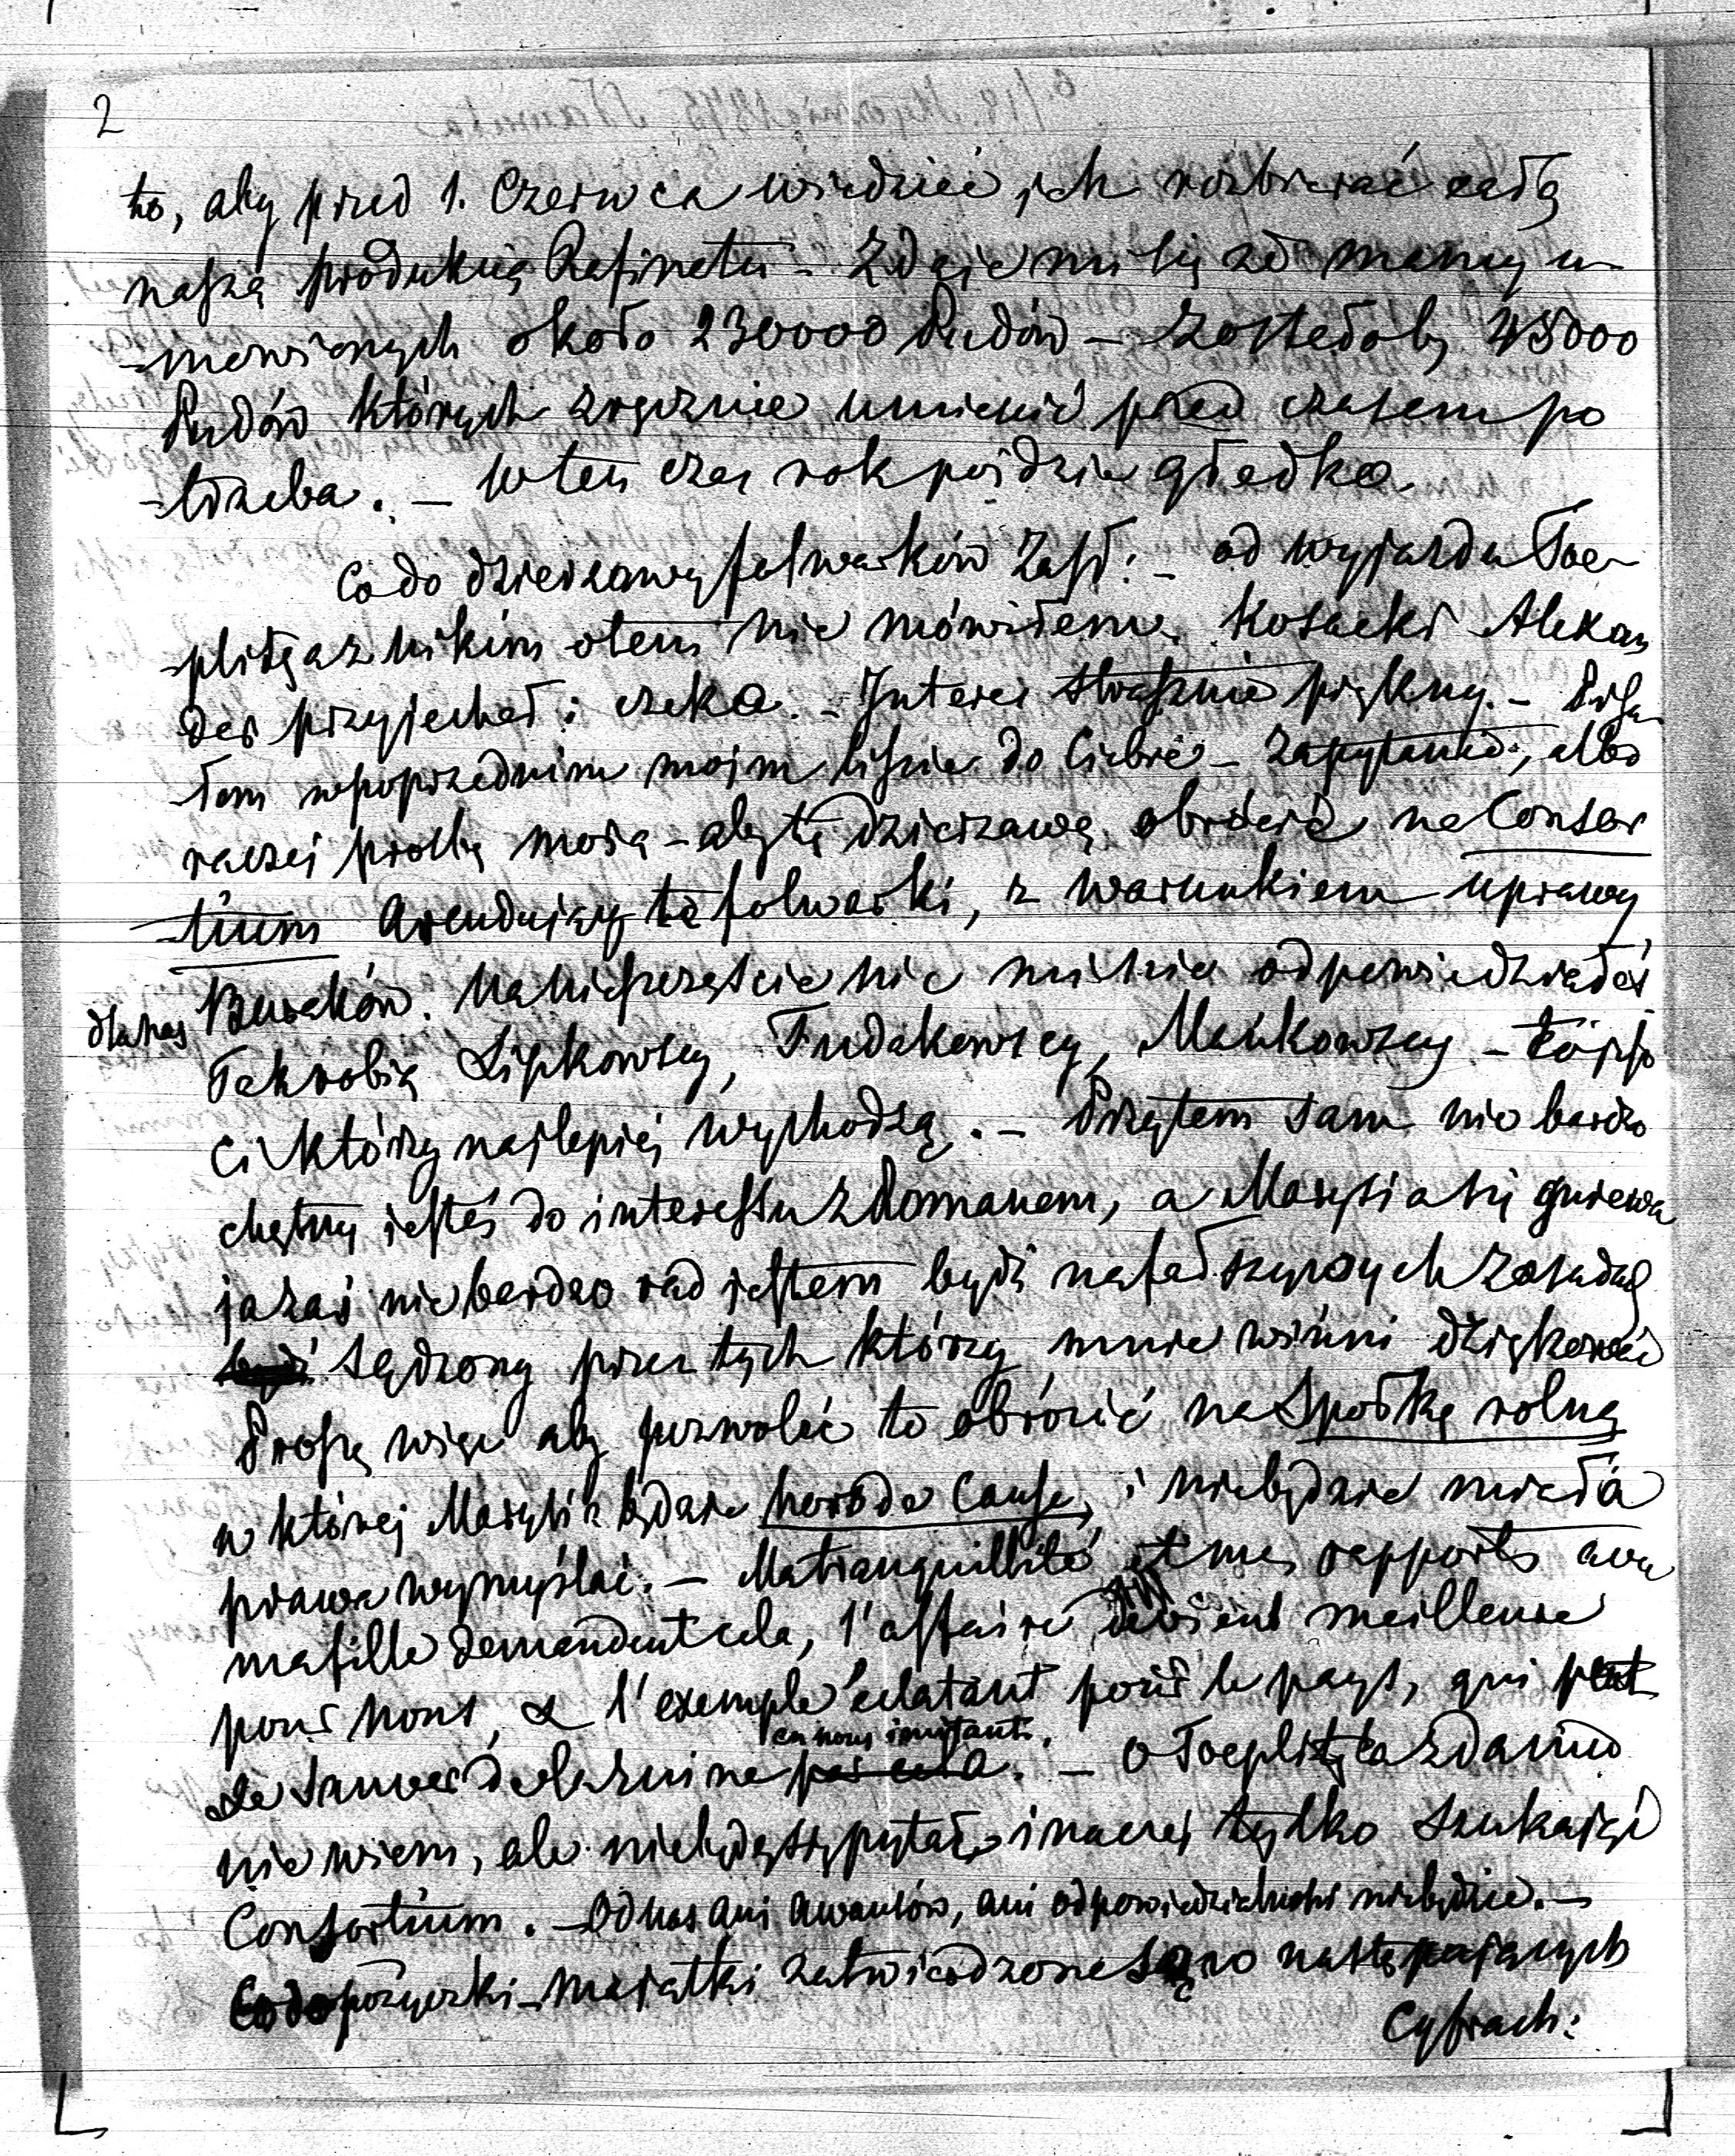 2
to, aby przed 1. Czerwca widzieć ich rozbierać całą
naszą produkcią Rafinatu – Zdaje mi się że mamy u-
-mowionych około 230000 Pudów – Zostałoby 45000
Pudów których zręcznie umieścić przed czasem po
-trzeba. – W ten czas rok pójdzie gładko
Co do dzierżawy folwarków Zasł: – od wyjazdu Toe-
-plitza z nikim o tem nie mówiłem. Kosacki Alexan
der przyjechał i czeka. – Interes strasznie piękny. – Pisa
łem w poprzednim moim liście do Ciebie – Zapytanie, albo
raczej prośbę moią – aby tę dzierzawę obrócić na Consor
-tium Arendujący te folwarki, z warunkiem uprawy
dla nas Buraków. Na nieszczęście nic mi nie odpowiedziałeś
Tak robią Lipkowscy, Fudakowscy, Mańkowscy –
ci którzy najlepiej wychodzą. – Przytem sam nie bardzo
chętny jesteś do interessu z Romanem, a Marysia się gniewa
ja zaś nie bardzo rad jestem bydź na fałszywych zasadach
bydź sądzony przez tych którzy mnie winni dziękować
Proszę więc aby pozwolić to obrócić na Spółkę rolną
w której Marysia będzie hors de cause, i nie będzie miała
prawa wymyślać. – Ma tranquillité et mes rapports avec
ma fille demandent cela, l'affaire devient meilleure
pour nous, & l'exemple éclatant pour le pays, qui peut
se sauver de la ruine par cela en nous imitant. – O Toeplitza zdanie
nie wiem, ale nie będę się pytał, inaczej tylko szukając
Consortium. – Od nas ani Awansów, ani odpowiedzialności nie będzie. –
Co do pożyczki – Majątki zatwierdzone są w następujących
Cyfrach: